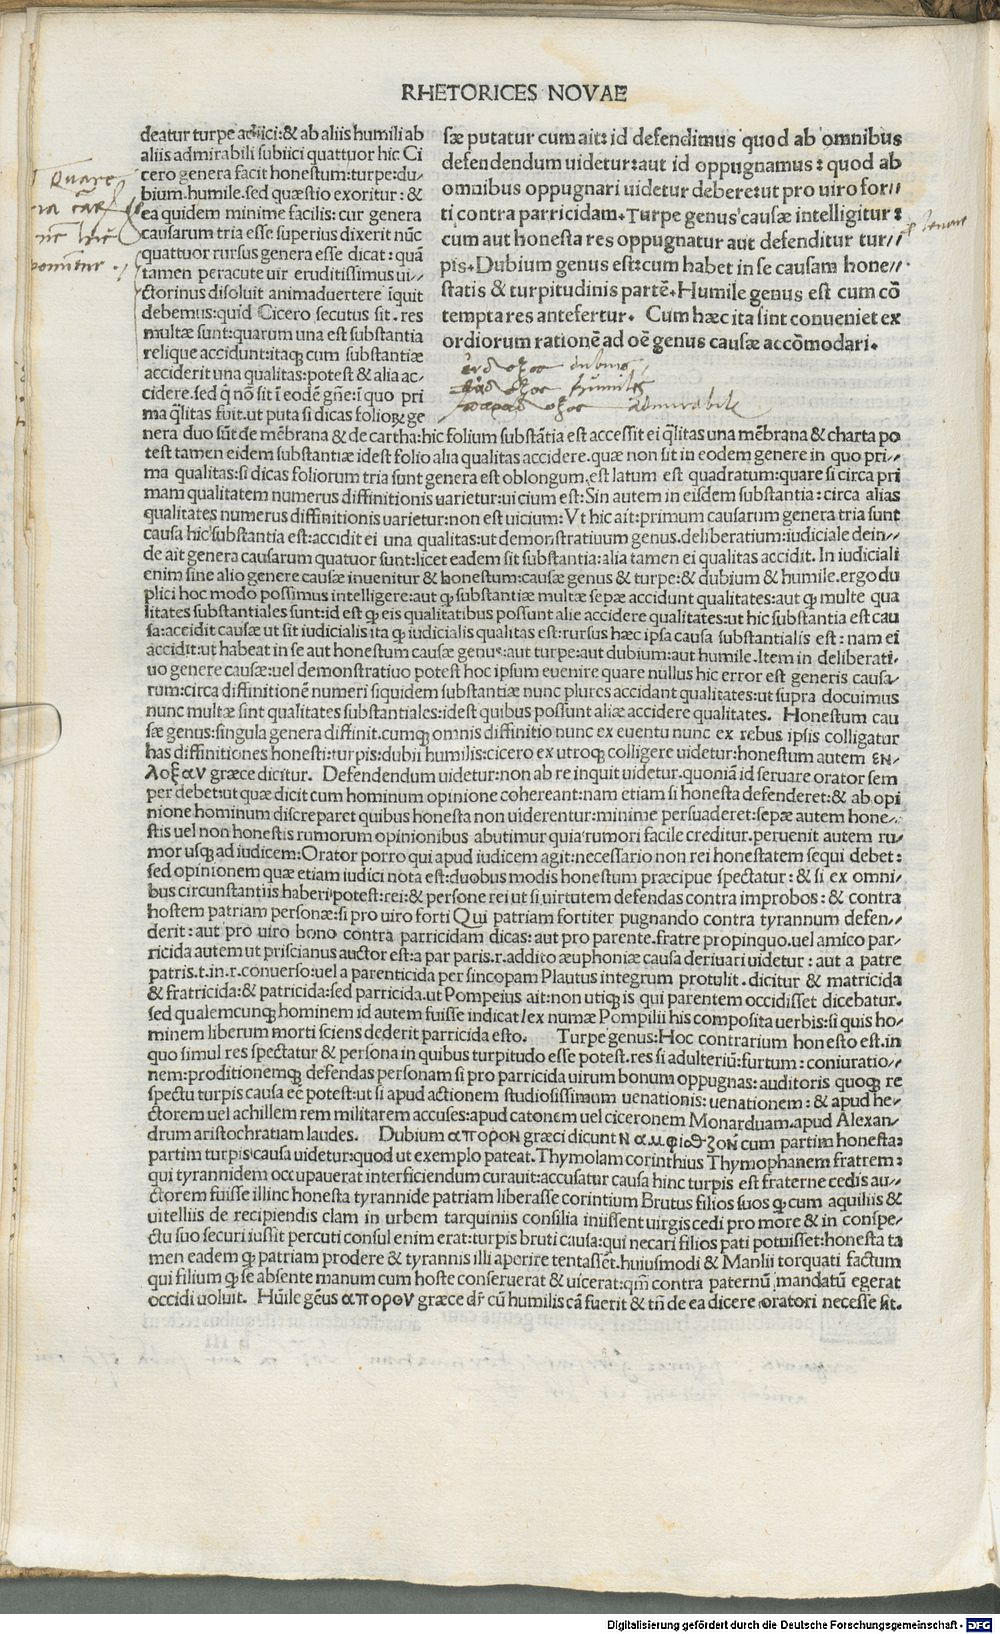 RHETORICES NOVAE
deatur turpe adiici:& ab aliis humili ab
aliis admirabili subiici quattuor hic Ci
cero genera facit honestum:turpe:du-
bium.humile.sed quæstio exoritur:&
ea quidem minime facilis: cur genera
causarum tria esse superius dixerit nūc
quattuor rursus genera esse dicat:quā
tamen peracute uir eruditissimus ui-
ctorinus disoluit animaduertere īquit
debemus:quid Cicero secutus sit.res
multæ sunt:quarum una est substantia
relique accidunt:itaq; cum substantiæ
acciderit una qualitas:potest & alia ac-
cidere.sed q̄ nō sit ī eodē gn̄e:ī quo pri
ma q̄litas fuit.ut puta si dicas folioꝝ ge
sæ putatur cum ait: id defendimus quod ab omnibus
defendendum uidetur:aut id oppugnamus: quod ab
omnibus oppugnari uidetur debere:ut pro uiro for-
ti contra parricidam. Turpe genus causæ intelligitur:
cum aut honesta res oppugnatur aut defenditur tur-
pis. Dubium genus est:cum habet in se causam hone-
statis & turpitudinis partē. Humile genus est cum cō
tempta res antefertur. Cum hæc ita sint conueniet ex
ordiorum rationē ad oē genus causæ accōmodari.
dubius
humiles
admirabile
Quare
nera duo sūt de mēbrana & de cartha:hic folium substātia est accessit ei q̄litas una mēbrana & charta po
test tamen eidem substantiæ idest folio alia qualitas accidere.quæ non sit in eodem genere in quo pri-
ma qualitas:si dicas foliorum tria sunt genera est oblongum.est latum est quadratum:quare si circa pri
mam qualitatem numerus diffinitionis uarietur:ui cium est:Sin autem in eisdem substantia:circa alias
qualitates numerus diffinitionis uarietur:non est uicium:Vt hic ait:primum causarum genera tria sunt
causa hic substantia est:accidit ei una qualitas:ut demonstratiuum genus.deliberatium:iudiciale dein-
de ait genera causarum quatuor sunt:licet eadem sit substantia:alia tamen ei qualitas accidit. In iudiciali
enim sine alio genere causæ inuenitur & honestum:causæ genus & turpe:& dubium & humile.ergo du
plici hoc modo possimus intelligere:aut q; substantiæ multæ sepæ accidunt qualitates:aut q; multe qua
litates substantiales sunt:id est q; eis qualitatibus possunt alie accidere qualitates:ut hic substantia est cau
sa:accidit causæ ut sit iudicialis ita q; iudicialis qualitas est:rursus hæc ipsa causa substantialis est: nam ei
accidit:ut habeat in se aut honestum causæ genus:aut turpe:aut dubium:aut humile.Item in deliberati-
uo genere causæ:uel demonstratiuo potest hoc ipsum euenire quare nullus hic error est generis causa-
rum:circa diffinitionē numeri siquidem substantiæ nunc plures accidant qualitates:ut supra docuimus
nunc multæ sint qualitates substantiales:idest quibus possunt aliæ accidere qualitates. Honestum cau
sæ genus:singula genera diffinit.cumq; omnis diffinitio nunc ex euentu nunc ex rebus ipsis colligatur
has diffinitiones honesti:turpis:dubii humilis:cicero ex utroq; colligere uidetur:honestum autem εν-
λοξαν græce dicitur. Defendendum uidetur:non ab re inquit uidetur.quoniā id seruare orator sem
per debet:ut quæ dicit cum hominum opinione cohereant:nam etiam si honesta defenderet:& ab opi
nione hominum discreparet quibus honesta non uiderentur:minime persuaderet:sepæ autem hone-
stis uel non honestis rumorum opinionibus abutimur quia rumori facile creditur.peruenit autem ru-
mor usq; ad iudicem:Orator porro qui apud iudicem agit:necessario non rei honestatem sequi debet:
sed opinionem quæ etiam iudici nota est:duobus modis honestum præcipue spectatur:& si ex omni-
bus circunstantiis haberi potest:rei:& persone rei ut si uirtutem defendas contra improbos:& contra
hostem patriam personæ:si pro uiro forti Qui patriam fortiter pugnando contra tyrannum defen-
derit: aut pro uiro bono contra parricidam dicas: aut pro parente.fratre propinquo.uel amico par-
ricida autem ut priscianus auctor est:a par paris.r.addito æuphoniæ causa deriuari uidetur: aut a patre
patris.t.in.r.conuerso:uel a parenticida per sincopam Plautus integrum protulit.dicitur & matricida
& fratricida:& patricida:sed parricida.ut Pompeius ait:non utiq; is qui parentem occidisset dicebatur.
sed qualemcunq; hominem id autem fuisse indicat lex numæ Pompilii his composita uerbis:si quis ho-
minem liberum morti sciens dederit parricida esto. Turpe genus:Hoc contrarium honesto est.in
quo simul res spectatur & persona in quibus turpitudo esse potest.res si adulteriū:furtum: coniuratio-
nem:proditionemq; defendas personam si pro parricida uirum bonum oppugnas:auditoris quoq; re
spectu turpis causa eē potest:ut si apud actionem studiosissimum uenationis:uenationem:& apud he-
ctorem uel achillem rem militarem accuses:apud catonem uel ciceronem Monarduam.apud Alexan-
drum aristochratiam laudes. Dubium αποροn græci dicunt cum partim honesta:
partim turpis causa uidetur:quod ut exemplo pateat.Thymolam corinthius Thymophanem fratrem:
qui tyrannidem occupauerat interficiendum curauit:accusatur causa hinc turpis est fraterne cedis au-
ctorem fuisse illinc honesta tyrannide patriam liberasse corintium Brutus filios suos q; cum aquiliis &
uitelliis de recipiendis clam in urbem tarquiniis consilia iniissent uirgis cedi pro more & in conspe-
ctu suo securi iussit percuti consul enim erat:turpis bruti causa:qui necari filios pati potuisset:honesta ta
men eadem q; patriam prodere & tyrannis illi aperire tentassēt.huiusmodi & Manlii torquati factum
qui filium q; se absente manum cum hoste conseruerat & uicerat:qm̄ contra paternū mandatū egerat
occidi uoluit. Hūile gēus αποροv græce dr̄ cū humilis cā fuerit & tn̄ de ea dicere oratori necesse sit.
Digitalisierung gefördert durch die Deutsche Forschungsgemeinschaft - DFG